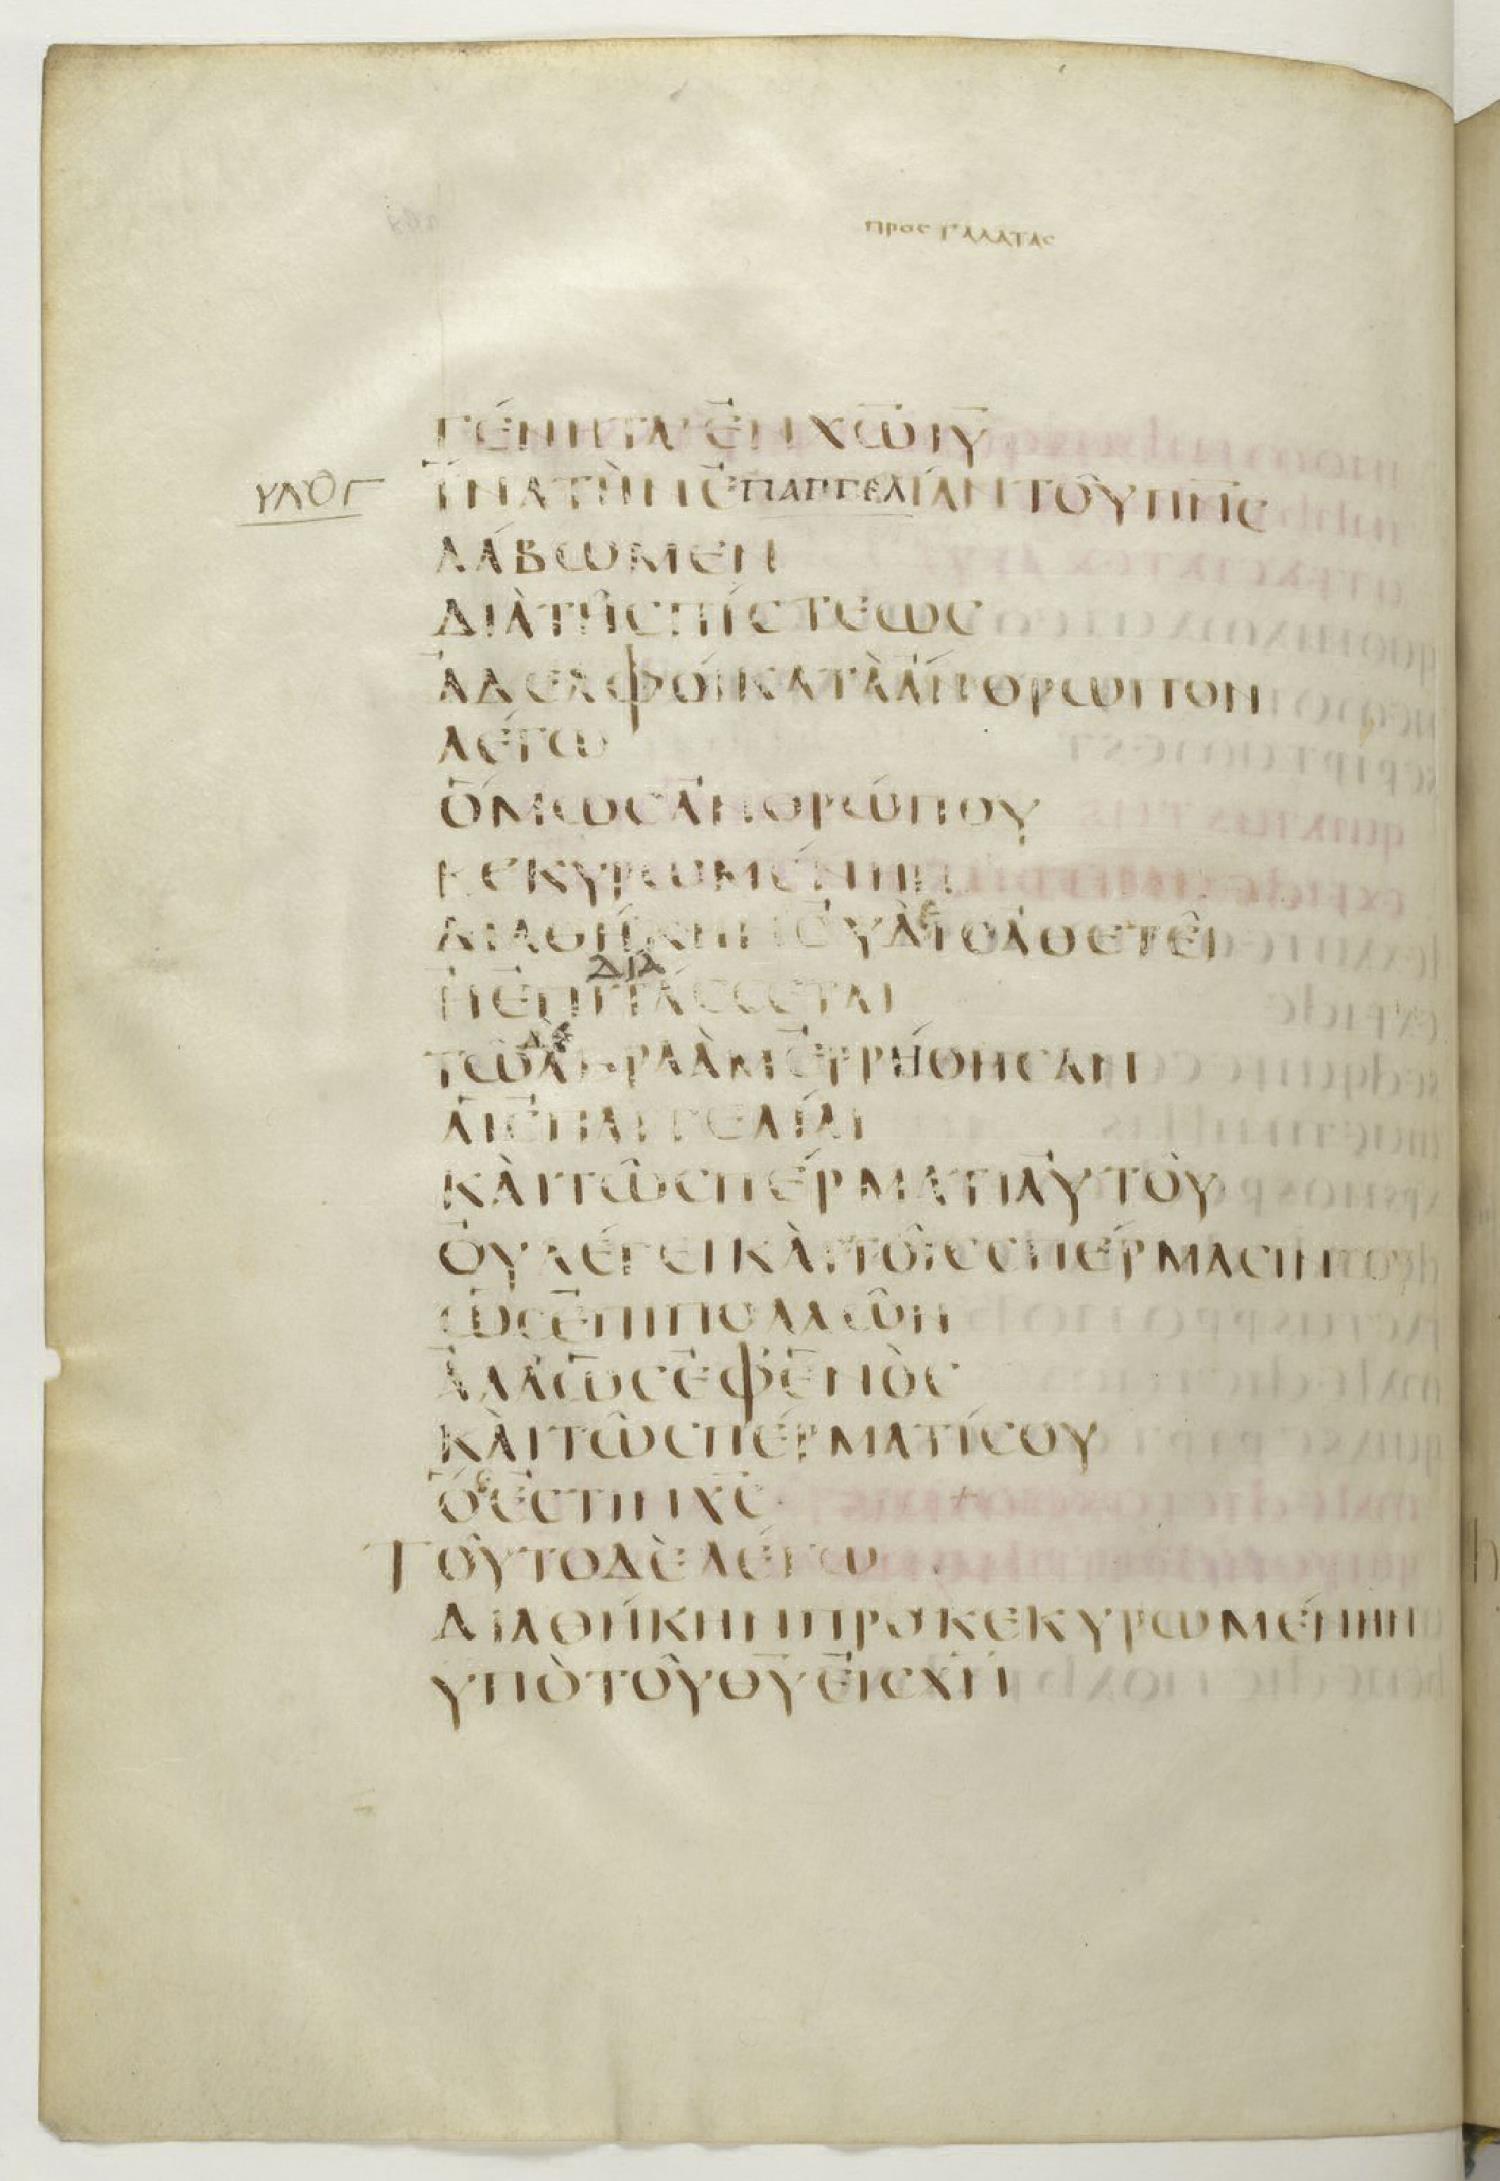 ΠΡΟΣ ΓΑΛΑΤΑΣ
ΓΈΝΗΤΑΙ ἘΝ ΧΩ ΙΥ
ΥΛΟΓ ἽΝΑ ΤῊΝ ἘΠΑΓΓΕΛΊΑΝ ΤΟῦ ΠΝΣ
ΛΆΒΩΜΕΝ
ΔΙᾺ ΤΗΣ ΠΊΣΤΕΩΣ
ἈΔΕΛΦΟΊ ΚΑΤᾺ ἌΝΘΡΩΠΟΝ
ΛΈΓΩ
ὍΜΩΣ ἈΝΘΡΏΠΟΥ
ΚΕΚΥΡΩΜΈΝΗΝ
ΔΙΑΘΉΚΗΝ ΟΥΔῚΣ ἈΘΕΤΕῖ
Ἠ ἘΠΙΔΙΑΤΆΣΣΕΤΑΙ
ΤΩ ΔΕ ἈΒΡΑᾺΜ ἘΡΡΉΘΗΣΑΝ
ἈΙ ἘΠΑΓΓΕΛΊΑΙ
ΚᾺΙ ΤΩ ΣΠΈΡΜΑΤΙ ἈΥΤΟῦ
ὈΥ ΛΈΓΕΙ ΚᾺΙ ΤΟῖΣ ΣΠΈΡΜΑΣΙΝ
ὩΣ ἘΠΙ ΠΟΛΛῶΝ
ἈΛΛ ὩΣ ἘΦ ἙΝῸΣ
ΚᾺΙ ΤΩ ΣΠΈΡΜΑΤΊ ΣΟΥ
ὍΣ ἘΣΤΙΝ ΧΣ
ΤΟῦΤΟ ΔῈ ΛΈΓΩ
ΔΙΑΘΉΚΗΝ ΠΡΟΚΕΚΥΡΩΜΈΝΗΝ
ΥΠῸ ΤΟῦ ΘΥ ἘΙΣ ΧΝ